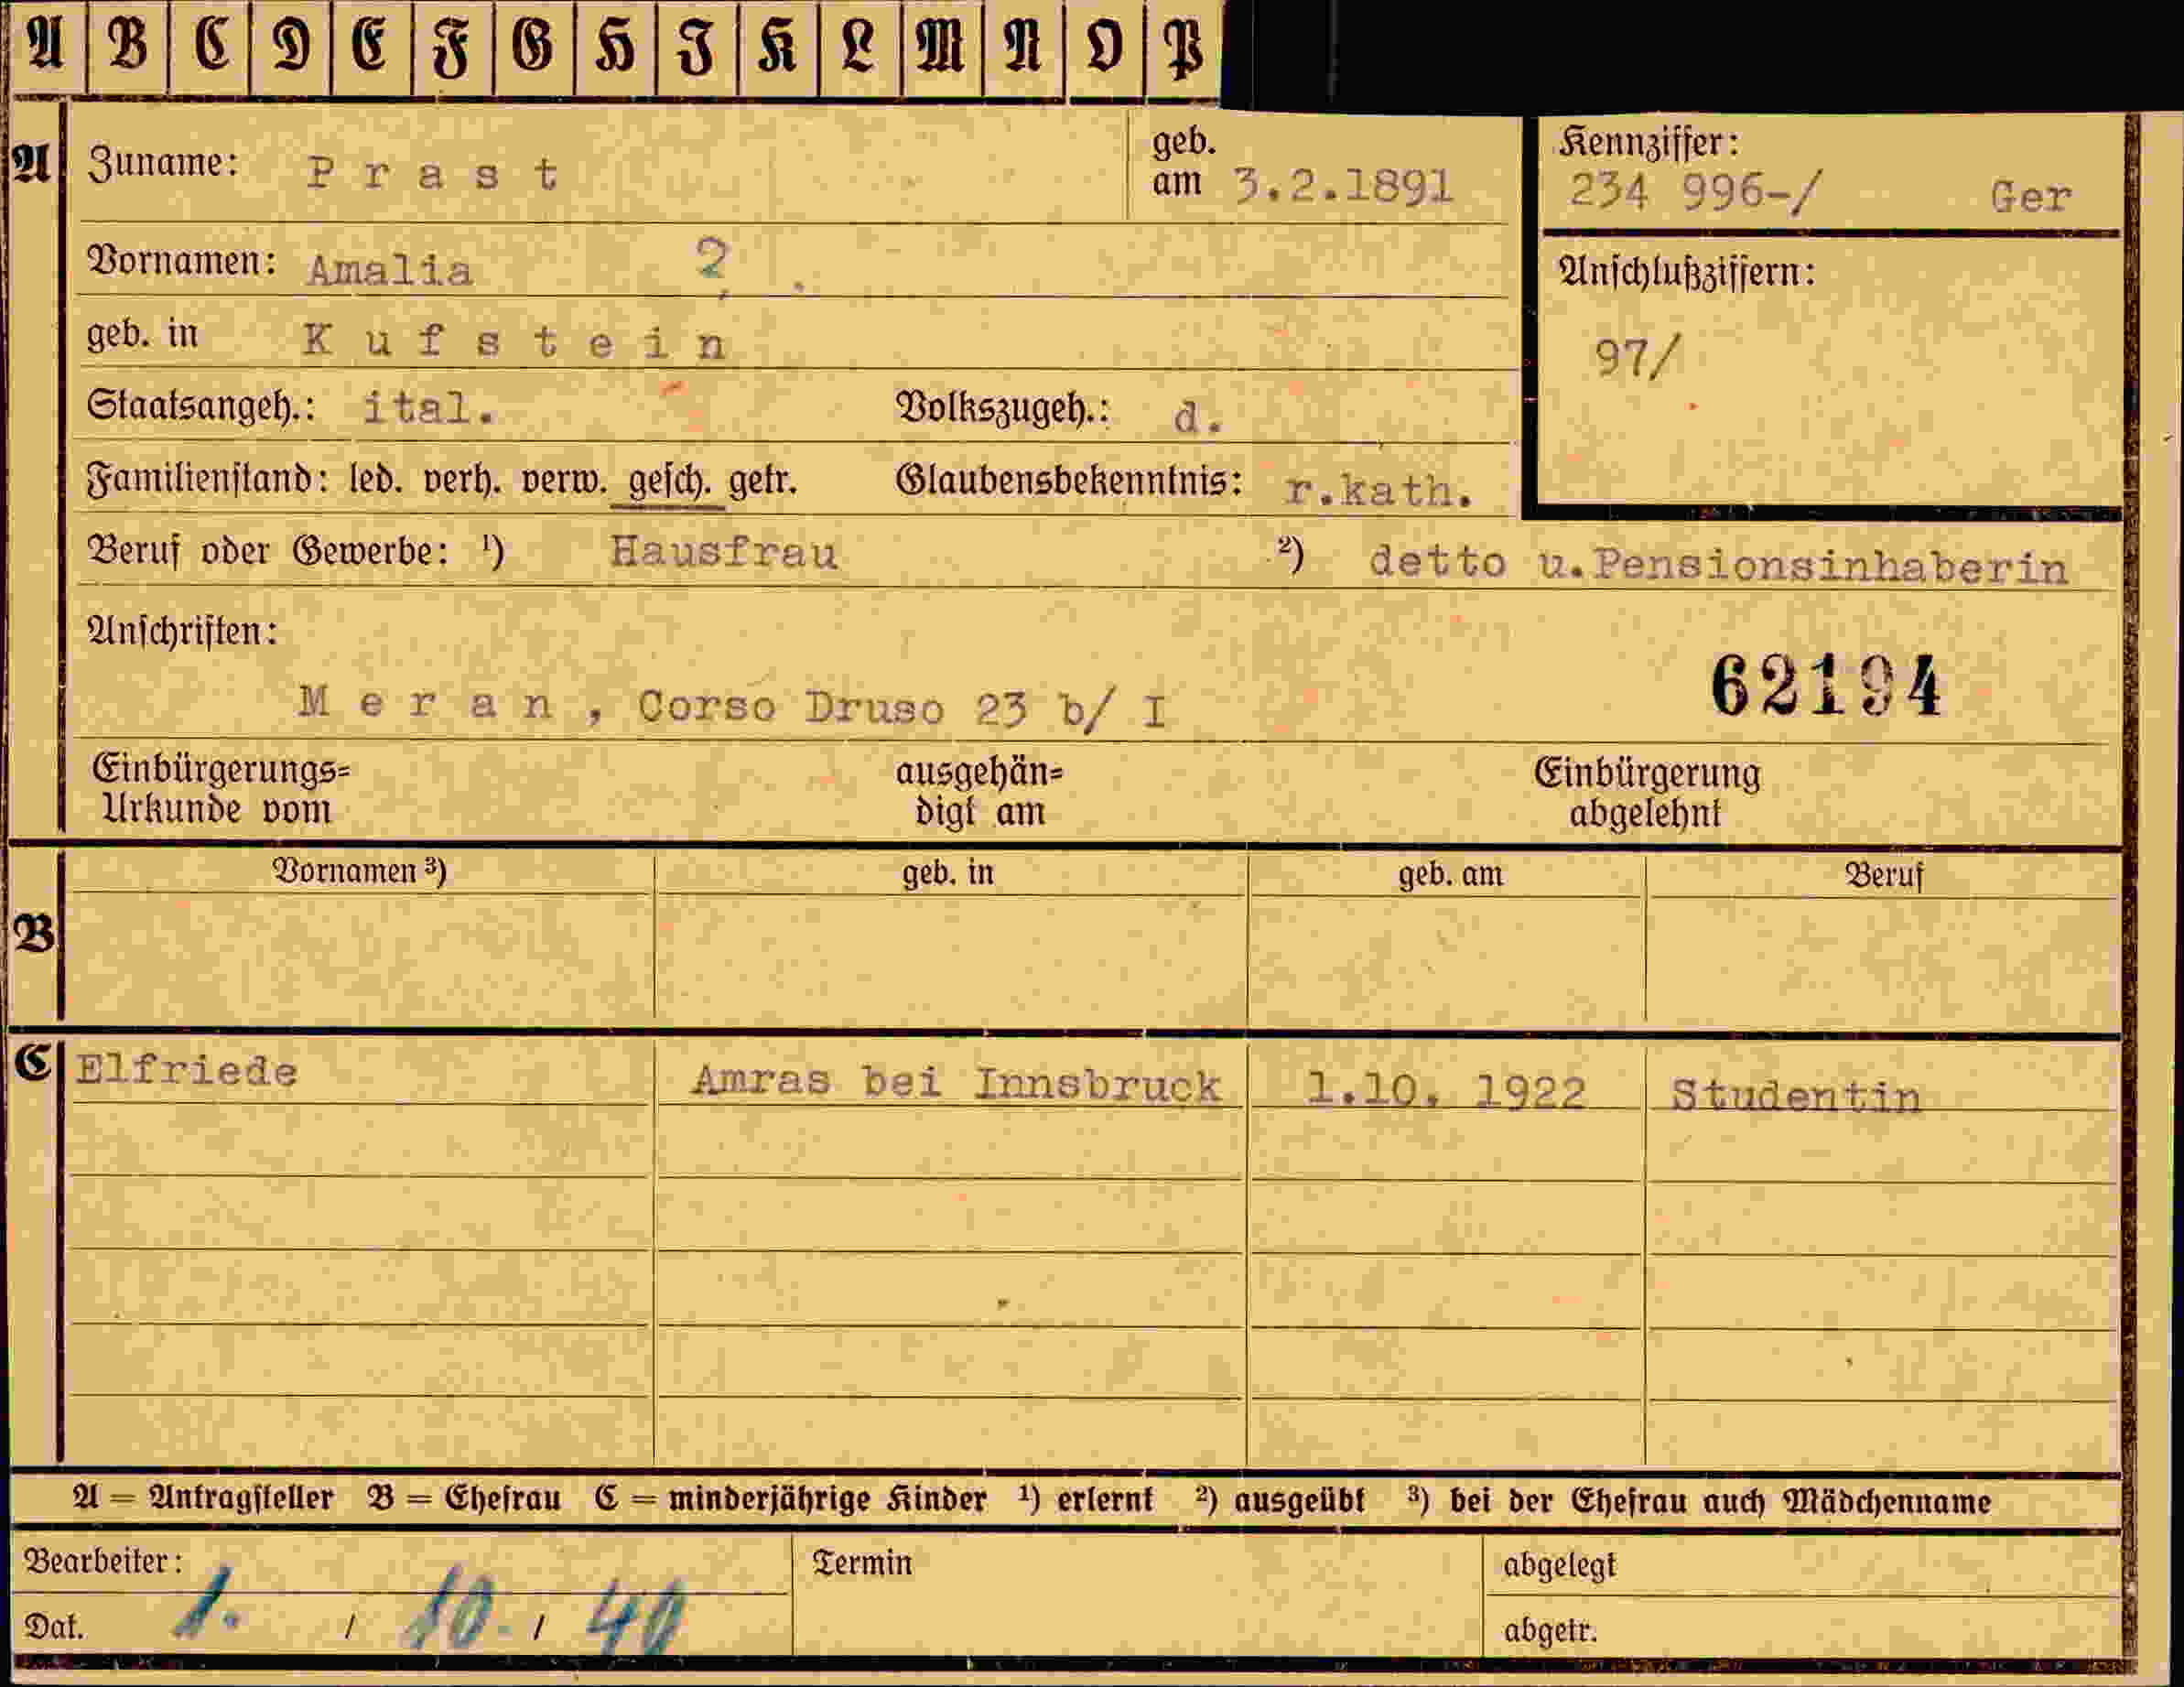 A B C D E F G H J K L M N O P
A Zuname: Prast geb. am 3.2.1891 Kennziffer: 234 996-/ Ger
Vornamen: Amalia 2 Anschlußziffern:
geb. in Kufstein 97/
Staatsangeh.: ital. Volkszugeh.: d.
Familienstand: led. verh. verw. gesch. getr. Glaubensbekenntnis: r.kath.
Beruf oder Gewerbe: ¹) Hausfrau ²) detto u.Pensionsinhaberin
Anschriften:
62194
Meran, Corso Druso 23 b/ I
Einbürgerungs= ausgehän= Einbürgerung
Urkunde vom digt am abgelehnt
Vornamen ³) geb. in geb. am Beruf
B
C Elfriede Amras bei Innsbruck 1.10. 1922 Studentin
A = Antragsteller B = Ehefrau C = minderjährige Kinder ¹) erlernt ²) ausgeübt ³) bei der Ehefrau auch Mädchenname
Bearbeiter: Termin abgelegt
Dat. 1. / 10. / 40 abgetr.